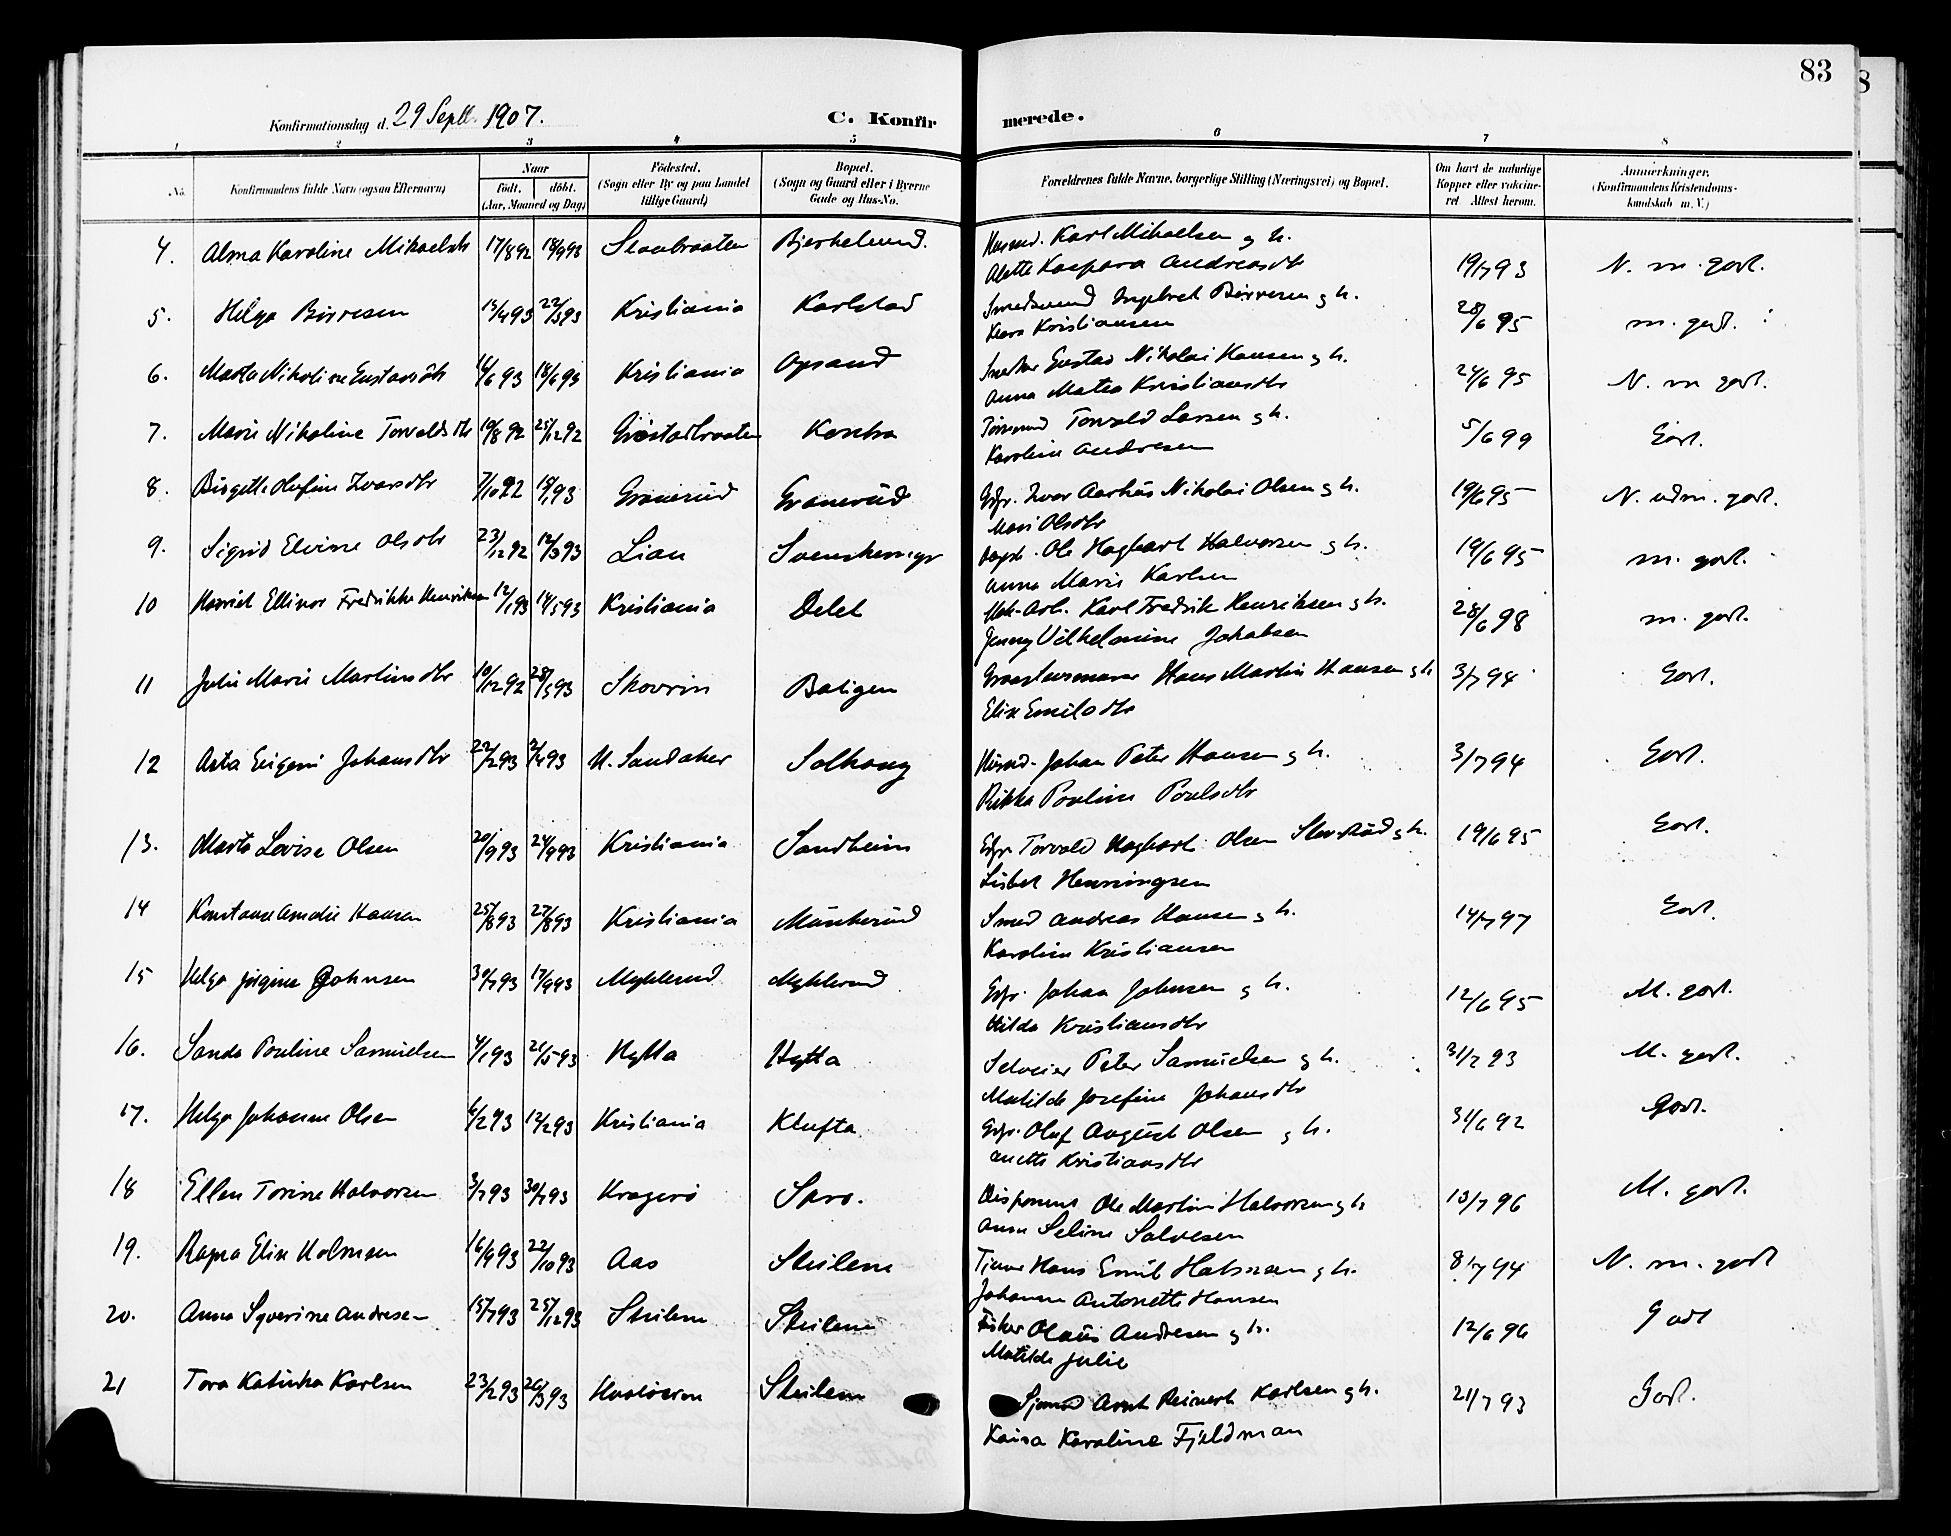 83
Konfirmationsdag d. 29 Septb. 1907.
C. Konfirmerede.
1 2 3 4 5 6 7 8
No.
Konfirmandens fulde Navn (ogsaa Efternavn)
Naar
født. døbt.
(Aar, Maaned og Dag)
Fødested.
(Sogn eller By og paa Landet
tillige Gaard)
Bopæl.
(Sogn og Gaard eller i Byerne
Gade og Hus-No.
Forældrenes fulde Navne, borgerlige Stilling (Næringsvei) og Bopæl.
Om havt de naturlige
Kopper eller vakcine-
ret Attest herom.
Anmærkninger.
(Konfirmandens Kristendoms-
kundskab m. V.)
4. Alma Karoline Mikaelsdtr 17/8 92 18/9 93 Bjerkelund. Karl Mikaelsen g h. 19/7 93 N. m. godt.
Alette Kaspara Andreasdtr
5. Helga Børresen 15/4 93 22/5 93 Kristiania Karlstad Ingebret Børresen g h. 28/6 95 m. godt.
Kristiansen
6. Marta Nikoline Gustavsdtr 18/6 93 Kristiania Opsand Gustav Nikolai Hansen g h. 24/6 95 N. m godt.
Anna Matea Kristiansdtr
7. Marie Nikoline Torvaldsdtr 19/8 92 25/12 92 Torvald Larsen g h. 5/6 99 Godt.
Karoline Andresen
8. Birgette Olufine Ivarsdtr 7/10 92 Granerud Granerud Gbr. Ivar Aarhus Nikolai Olsen g h. 19/6 95 N. udm. godt.
Mari Olsdtr
9. Sigrid Elvine Olsdtr 23/12 92 12/3 93 Lian Ole Hagbart Halvorsen g h. 19/6 95 m. godt.
Anna Marie Karlsen
10 Ellinor Fredrikke Henriksen 12/1 93 14/5 93 Kristiania Delet Karl Fredrik Henriksen g h. 28/6 98 m. godt.
Jenny Vilhelmine Jakobsen
11 Julie Marie Martinsdtr 10/12 92 28/5 93 Skovrin Boligen Hans Martin Hansen g h 3/7 94 Godt.
Elise Emilsdtr
12 Asta Eugeni Johansdtr 22/2 93 2/4 93 N. Sandaker Solhaug Johan Peter Hansen g h. 3/7 94 Godt.
Rikka Pauline Paulsdtr
13. Marta Lovise Olsen 20/9 93 Kristiania Sandheim Torvald Hagbart Olsen g h. 19/6 95 Godt.
Lisbet Henningsen
14 Konstanse Amalie Hansen 25/8 93 27/8 93 Kristiania Munkerud Smed Andreas Hansen g h. 14/7 97 Godt.
Karoline Kristiansen
15 Helga Jørgine Johnsen 30/7 93 17/9 93 Myklerud Myklerud Gbr. Johan Johnsen g h. 12/6 95 M. godt.
Hilda Kristiansdtr
16. Sanda Pauline Samuelsen 4/1 93 21/5 93 Hytta Hytta Selveier Peter Samuelsen g h. 31/7 93 M. godt.
Matilde Josefine Johansdtr
17. Helga Johanne Olsen 6/2 93 12/2 93 Kristiania Klufta Gbr. Oluf August Olsen g h. 31/6 92 Godt.
Anette Kristiansdtr
18 Ellen Torine Halvorsen 3/7 93 30/7 93 Kragerø Skro. Disponent Ole Martin Halvorsen g h 13/7 96 M. godt.
Anne Seline Salvesen
19. Ragna Elise Holmsen 16/9 93 22/10 93 Aas Steilene Hans Emil Holmsen g h. 8/7 94 N. m. godt
Johanne Antonette Hansen
20. Anna Syverine Andresen 15/7 93 25/12 93 Steilene Steilene Fisker Olaus Andresen g h. 12/6 96 Godt
Matilde Julie
21 Tora Katinka Karlsen 23/2 93 26/3 93 Steilene Sjømd Arnt Reinert Karlsen g h. 21/7 93 Godt.
Kaisa Karoline Fjeldman